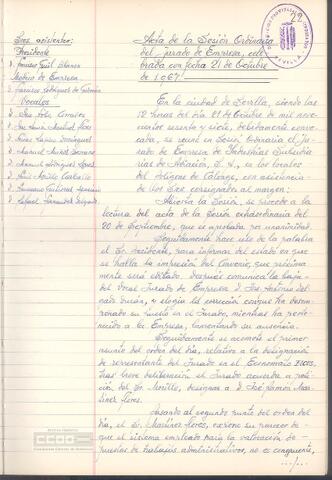 Sres. asistentes:
Presidente
D. Francisco Gil Blanco
Médico de Empresa
D. Francisco Rodríguez de Guzmán
Vocales
D. José Soler Canales
D. José Ramón Martínez Flores
D. Núñez Lapiso Domínguez
D. Manuel Muñoz Serrano
D. Manuel Rodríguez López
D. Luis Morillo Carballo
D. Rafael Fernández Delgado
79
SEVILLA
Acta de la Sesión Ordinaria
del Jurado de Empresa, cele
brada con fecha 21 de Octubre
de 1967.
En la ciudad de Sevilla, siendo las
12 horas del 21 de Octubre de mil nove-
cientos sesenta y siete, debidamente convo-
cada, se reunió en Sesión Ordinaria el Ju-
rado de Empresa de Industrias Subsidia
rias de Aviación, S.A., en los locales
del Polígono de Calonge, con asistencia
de los Sres consignados al margen:
Abierta la Sesión, se procede a la
lectura del acta de la Sesión extraordinaria del
20 de Septiembre, que es aprobada por unanimidad.
Seguidamente hace uso de la palabra
el Sr. Presidente, para informar del estado en que
se halla la impresión del Convenio, que próxima
mente será editado. Después comunica la baja
del vocal Jurado de Empresa D. José Antonio del
y elogia la corrección con que ha desem-
peñado su puesto en el Jurado, mientras ha perte-
necido a la Empresa, lamentando su ausencia.
Seguidamente se acomete el primer
punto del orden del día, relativo a la designación
de representante del Jurado en el Economato
Tras breve deliberación el Jurado acuerda a peti-
ción del Sr. Morillo, designar a D. José Ramón Mar-
tínez Flores.
Pasando al segundo punto del orden del
día, el Sr. Martínez Flores, expone su parecer de
que el sistema empleado para la valoración de
puestos de trabajos administrativos, no es congruente,
...//...
ccoo